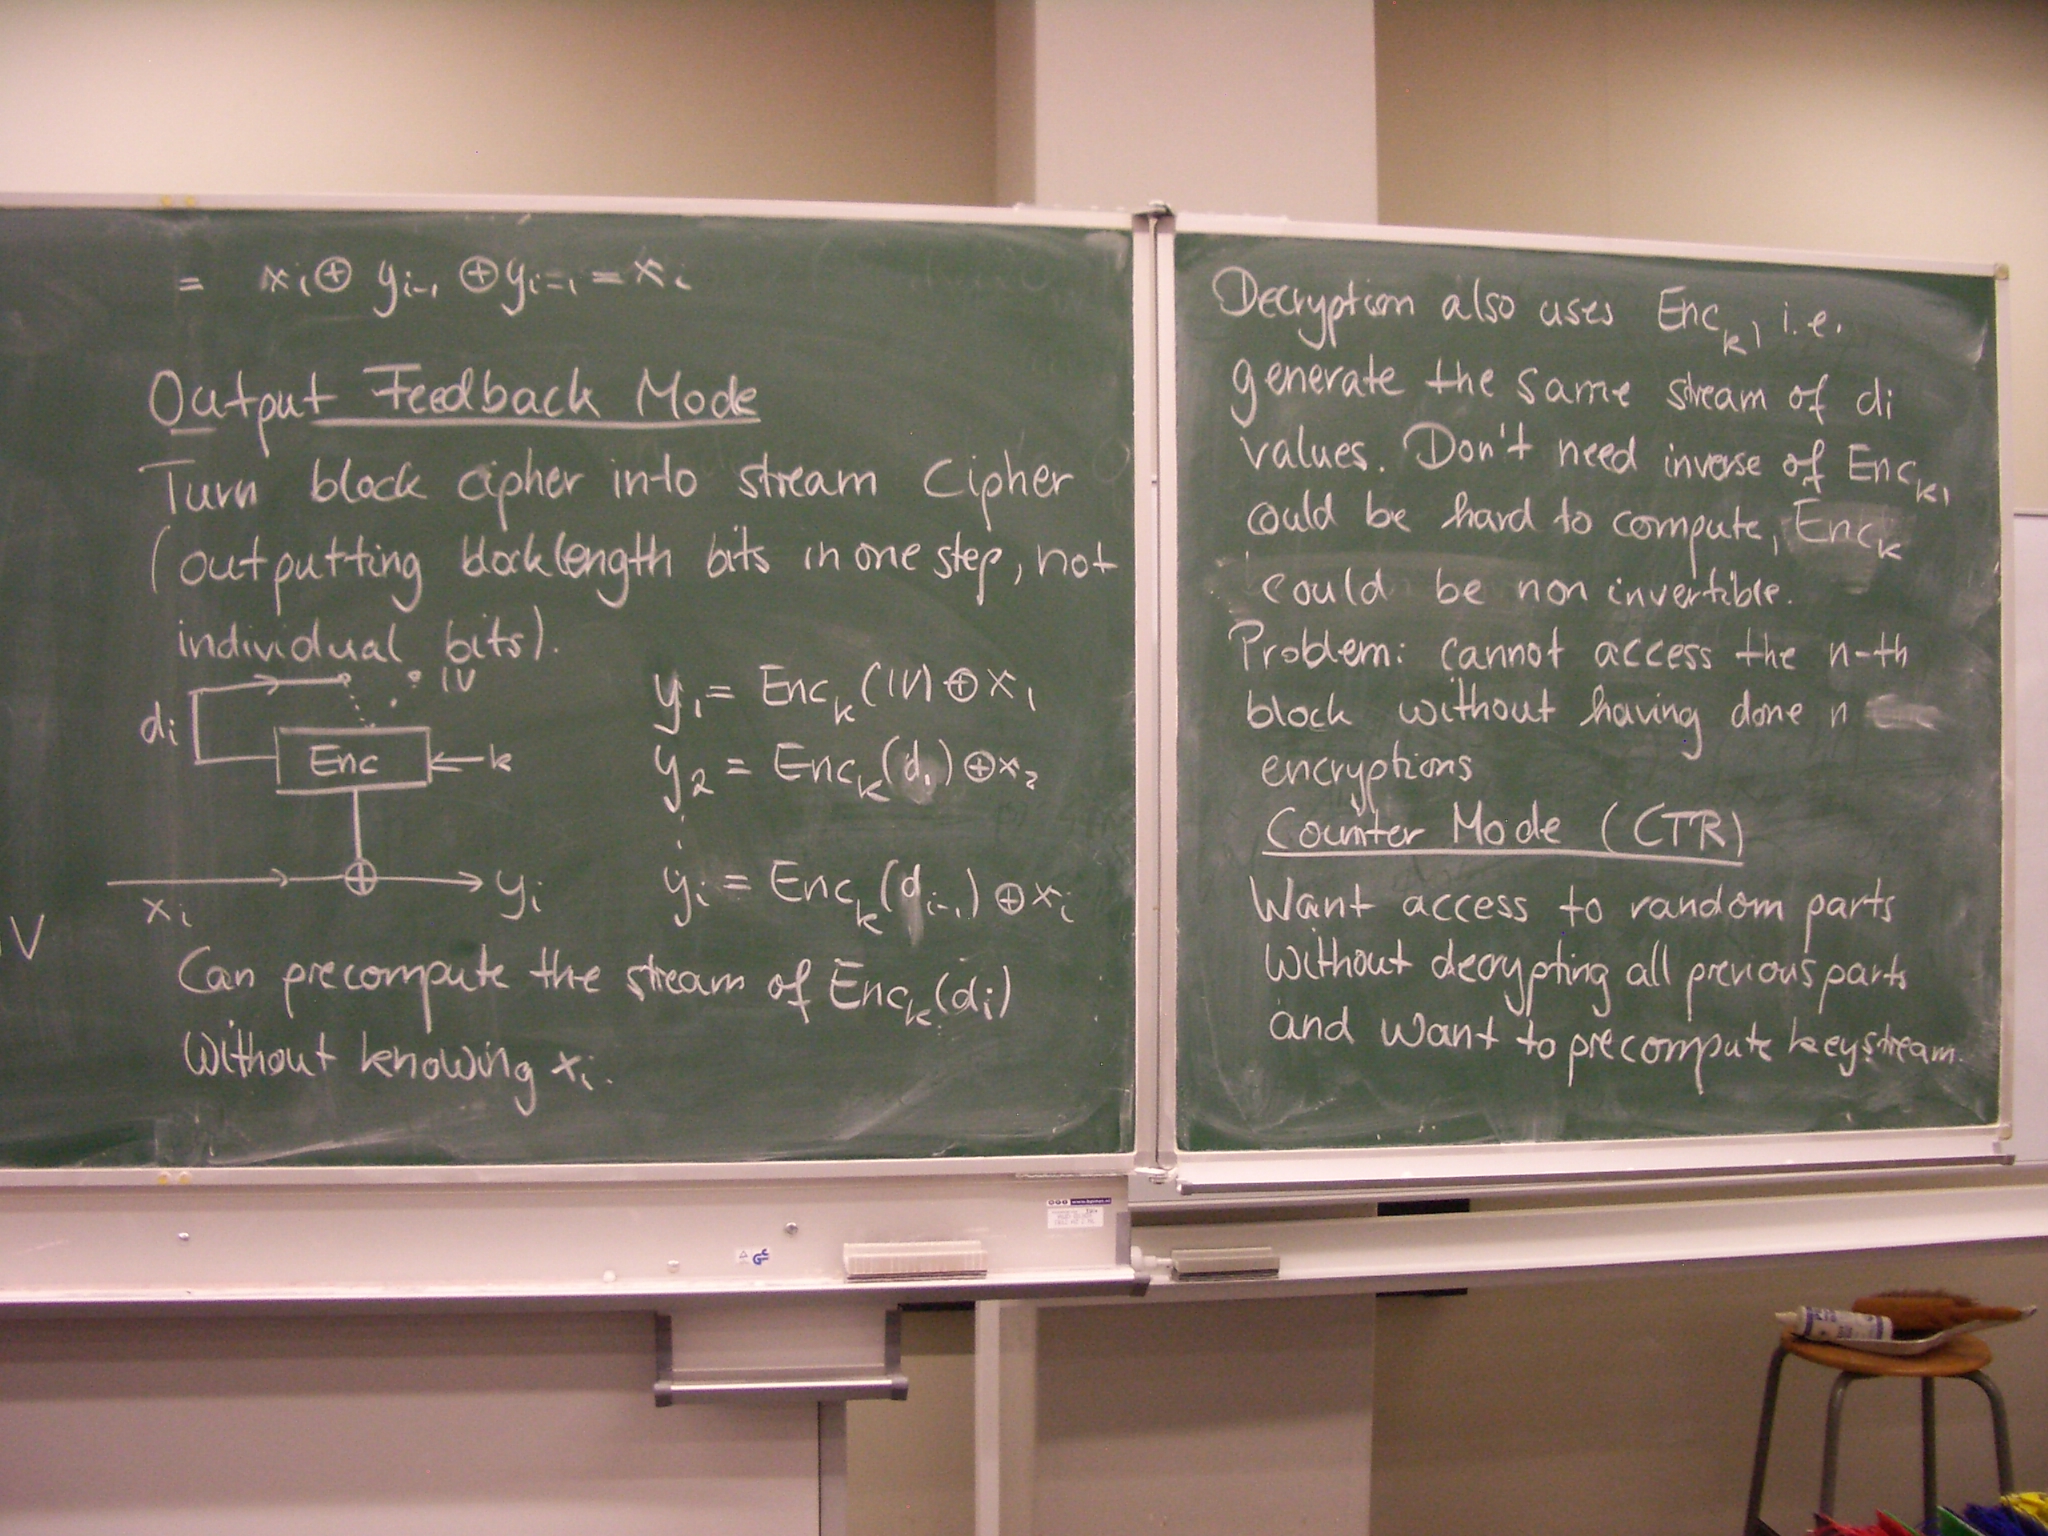 = xi ⊕ yi-1 ⊕ yi-1 = xi
Output Feedback Mode
Turn block cipher into stream cipher
(outputting blocklength bits in one step, not
individual bits).
IV
di
Enc
k
xi
yi
y1 = Enck(IV) ⊕ x1
y2 = Enck(d1) ⊕ x2
⋮
yi = Enck(di-1) ⊕ xi
IV
Can precompute the stream of Enck(di)
without knowing xi.
Decryption also uses Enck, i.e.
generate the same stream of di
values. Don't need inverse of Enck,
could be hard to compute, Enck
could be non invertible.
Problem: cannot access the n-th
block without having done n
encryptions
Counter Mode (CTR)
Want access to random parts
without decrypting all previous parts
and want to precompute keystream.